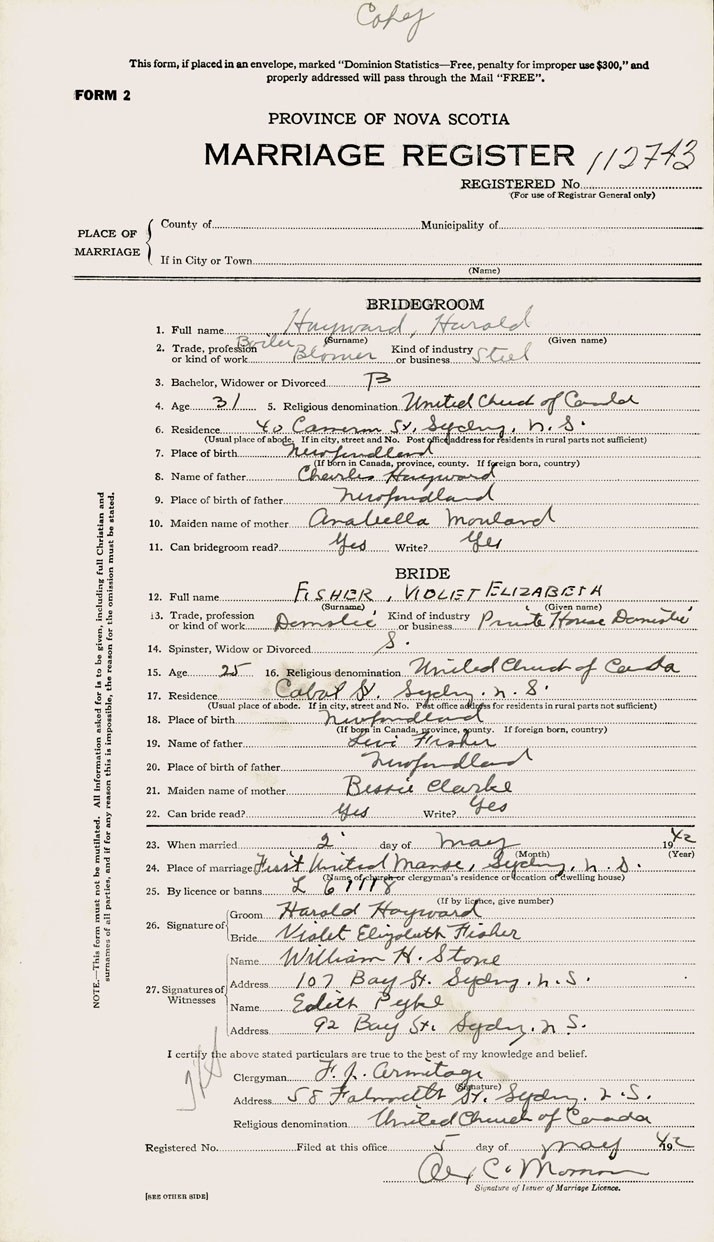 Copy
This form, if placed in an envelope, marked "Dominion Statistics—Free, penalty for improper use $300," and
properly addressed will pass through the Mail "FREE".
FORM 2
PROVINCE OF NOVA SCOTIA
MARRIAGE REGISTER 112743
REGISTERED No.
(For use of Registrar General only)
PLACE OF MARRIAGE
County of Municipality of
If in City or Town
(Name)
BRIDEGROOM
1. Full name Hayward, Harold
(Surname) (Given name)
2. Trade, profession or kind of work Boiler Kind of industry or business Steel
3. Bachelor, Widower or Divorced B
4. Age 31 5. Religious denomination United Church of Canada
6. Residence 40 Cameron St, Sydney, N. S.
(Usual place of abode. If in city, street and No. Post office address for residents in rural parts not sufficient)
7. Place of birth Newfoundland
(If born in Canada, province, county. If foreign born, country)
8. Name of father Charles Hayward
9. Place of birth of father Newfoundland
10. Maiden name of mother Anabella Mouland
11. Can bridegroom read? Yes Write? Yes
BRIDE
12. Full name FISHER, VIOLET ELIZABETH
(Surname) (Given name)
13. Trade, profession or kind of work Domestic Kind of industry or business Private House Domestic
14. Spinster, Widow or Divorced S.
15. Age 25 16. Religious denomination United Church of Canada
17. Residence Cabot St. Sydney. N. S.
(Usual place of abode. If in city, street and No. Post office address for residents in rural parts not sufficient)
18. Place of birth Newfoundland
(If born in Canada, province, county. If foreign born, country)
19. Name of father Levi Fisher
20. Place of birth of father Newfoundland
21. Maiden name of mother Bessie Clarke
22. Can bride read? Yes Write? Yes
23. When married 2 day of May 1942
(Month) (Year)
24. Place of marriage First United Manse, Sydney, N. S.
(Name of church or clergyman's residence or location of dwelling house)
25. By licence or banns L
(If by licence, give number)
26. Signature of Groom Harold Hayward
Bride Violet Elizabeth Fisher
27. Signatures of Witnesses
Name William H. Stone
Address 107 Bay St. Sydney. N. S.
Name Edith Pyke
Address 92 Bay St. Sydney. N. S.
I certify the above stated particulars are true to the best of my knowledge and belief.
Clergyman F. J. Armitage
(Signature)
Address 58 Falmouth St. Sydney. N. S.
Religious denomination United Church of Canada
Registered No. Filed at this office 5 day of May 1942
Alex C.
Signature of Issuer of Marriage Licence.
[SEE OTHER SIDE]
NOTE.—This form must not be mutilated. All information asked for is to be given, including full Christian and
surnames of all parties, and if for any reason this is impossible, the reason for the omission must be stated.